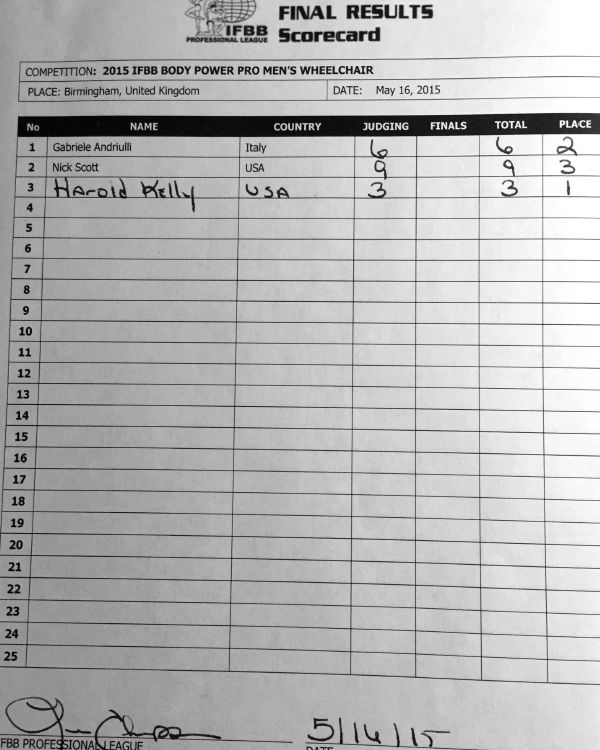 FINAL RESULTS
IFBB
PROFESSIONAL LEAGUE Scorecard
COMPETITION: 2015 IFBB BODY POWER PRO MEN'S WHEELCHAIR
PLACE: Birmingham, United Kingdom DATE: May 16, 2015
No NAME COUNTRY JUDGING FINALS TOTAL PLACE
1 Gabriele Andriulli Italy 6 6 2
2 Nick Scott USA 9 9 3
3 Harold Kelly USA 3 3 1
4
5
6
7
8
9
10
11
12
13
14
15
16
17
18
19
20
21
22
23
24
25
5/16/15
IFBB PROFESSIONAL LEAGUE DATE